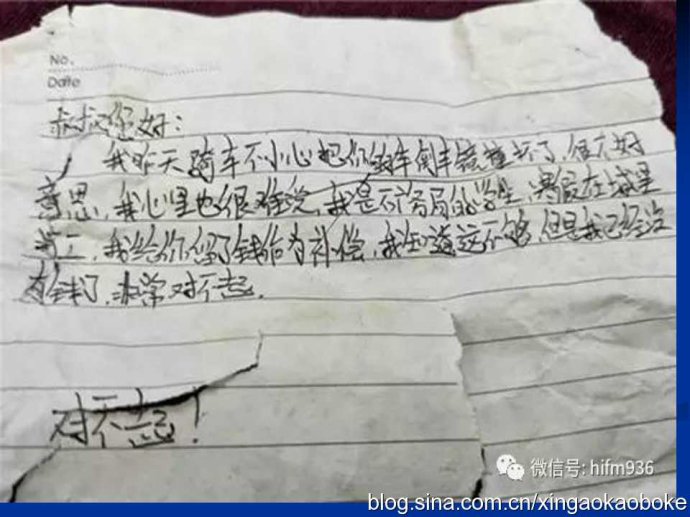 No.
Date
叔叔您好:
我昨天骑车不小心把你的车倒车镜撞坏了,很不好
意思,我心里也很难受,我是的学生,寒假在城里
打工,我给你留了钱作为补偿,我知道这不够,但是我已经没
有钱了,非常对不起.
对不起!
微信号: hifm936
blog.sina.com.cn/xingaokaoboke